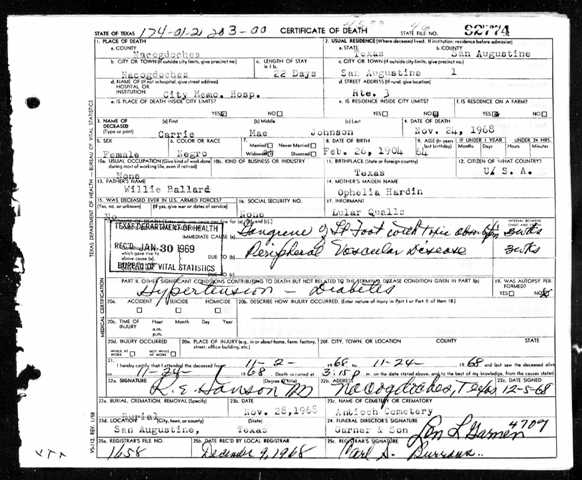 STATE OF TEXAS 174-01-2 283-00 CERTIFICATE OF DEATH STATE FILE NO. 82774
1. PLACE OF DEATH 2. USUAL RESIDENCE (Where deceased lived. If institution: residence before admission)
a. COUNTY a. STATE b. COUNTY
Nacogdoches Texas San Augustine
b. CITY OR TOWN (If outside city limits, give precinct no.) c. LENGTH OF STAY c. CITY OR TOWN (If outside city limits, give precinct no.)
Nacogdoches 22 Days San Augustine 1
d. NAME OF (If not in hospital, give street address) d. STREET ADDRESS (If rural, give location)
HOSPITAL OR INSTITUTION City Memo. Hosp. Rte. 3
e. IS PLACE OF DEATH INSIDE CITY LIMITS? e. IS RESIDENCE INSIDE CITY LIMITS? f. IS RESIDENCE ON A FARM?
YES NO YES NO YES NO
3. NAME OF DECEASED (a) First (b) Middle (c) Last 4. DATE OF DEATH
(Type or print) Carrie Mae Johnson Nov. 24, 1968
5. SEX 6. COLOR OR RACE 7. Married Never Married 8. DATE OF BIRTH 9. AGE IF UNDER 1 YEAR IF UNDER 24 HRS.
Female Negro Widowed Divorced Feb. 26, 1904 64
10a. USUAL OCCUPATION 10b. KIND OF BUSINESS OR INDUSTRY 11. BIRTHPLACE (State or foreign country) 12. CITIZEN OF WHAT COUNTRY?
None Texas U. S. A.
13. FATHER'S NAME 14. MOTHER'S MAIDEN NAME
Willie Ballard Ophelia Hardin
15. WAS DECEASED EVER IN U.S. ARMED FORCES? 16. SOCIAL SECURITY NO. 17. INFORMANT
No None Lular Qualls
TEXAS DEPARTMENT OF HEALTH
REC'D JAN 30 1969
BUREAU OF VITAL STATISTICS
IMMEDIATE CAUSE (a) Gangrene of Lt Foot with
Peripheral Vascular Disease
PART II. OTHER SIGNIFICANT CONDITIONS CONTRIBUTING TO DEATH BUT NOT RELATED TO THE TERMINAL DISEASE CONDITION GIVEN IN PART I(a) 19. WAS AUTOPSY PERFORMED?
Hypertension - Diabetes YES NO
20a. ACCIDENT SUICIDE HOMICIDE 20b. DESCRIBE HOW INJURY OCCURRED. (Enter nature of injury in Part I or Part II of item 18.)
20c. TIME OF INJURY Hour Month Day Year
a.m.
p.m.
20d. INJURY OCCURRED 20e. PLACE OF INJURY (e.g. in or about home, farm, factory, street, office building, etc.) 20f. CITY, TOWN, OR LOCATION COUNTY STATE
21. I hereby certify that I attended the deceased from 11-2- 1968 to 11-24- 1968 and last saw the deceased alive
11-24- 1968 Death occurred at 3:15 p m. on the date stated above, and to the best of my knowledge, from the causes stated
22a. SIGNATURE (Degree or title) 22b. ADDRESS 22c. DATE SIGNED
R. E. Hanson MD Nacogdoches, Texas 12-5-68
23a. BURIAL, CREMATION, REMOVAL (Specify) 23b. DATE 23c. NAME OF CEMETERY OR CREMATORY
Burial Nov. 28, 1968 Antioch Cemetery
23d. LOCATION (City, town, or county) (State) 24. FUNERAL DIRECTOR'S SIGNATURE
San Augustine, Texas Garner & Son 4709
25a. REGISTRAR'S FILE NO. 25b. DATE REC'D BY LOCAL REGISTRAR 25c. REGISTRAR'S SIGNATURE
1658 December 9, 1968
TEXAS DEPARTMENT OF HEALTH - BUREAU OF VITAL STATISTICS
MEDICAL CERTIFICATION